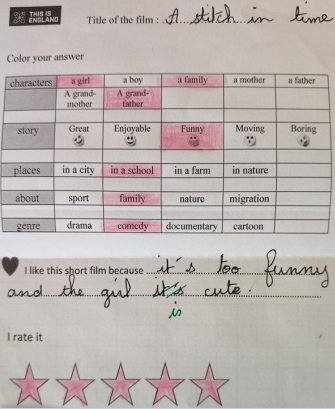 THIS IS
ENGLAND
Title of the film : A stitch in time
Color your answer
characters a girl a boy a family a mother a father
A grand-mother A grand-father
story Great Enjoyable Funny Moving Boring
places in a city in a school in a farm in nature
about sport family nature migration
genre drama comedy documentary cartoon
I like this short film because it's too funny
and the girl it's cute.
is
I rate it